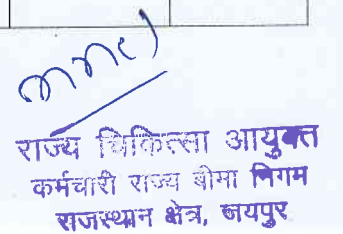 राज्य चिकित्सा आयुक्त
कर्मचारी राज्य बीमा निगम
राजस्थान क्षेत्र, जयपुर